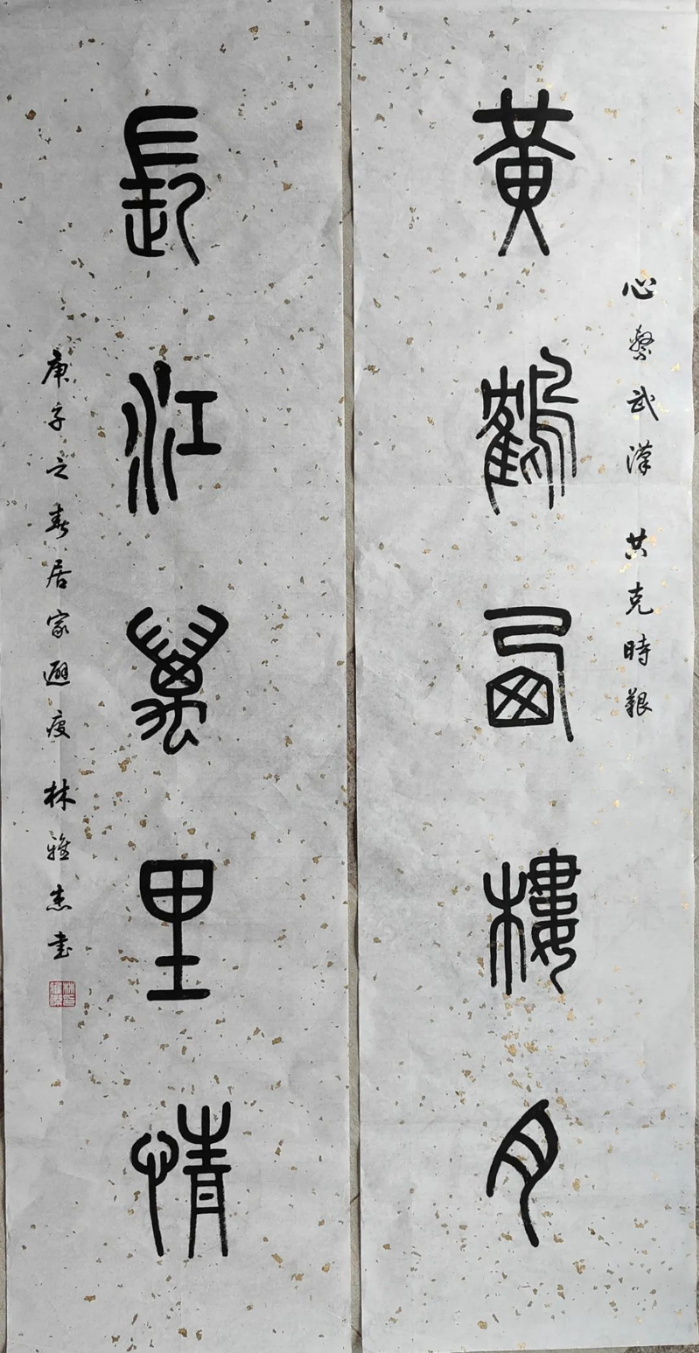 心繫武漢 共克時艱
黄鶴西樓月
長江萬里情
庚子之春居家避疫 林雅杰書